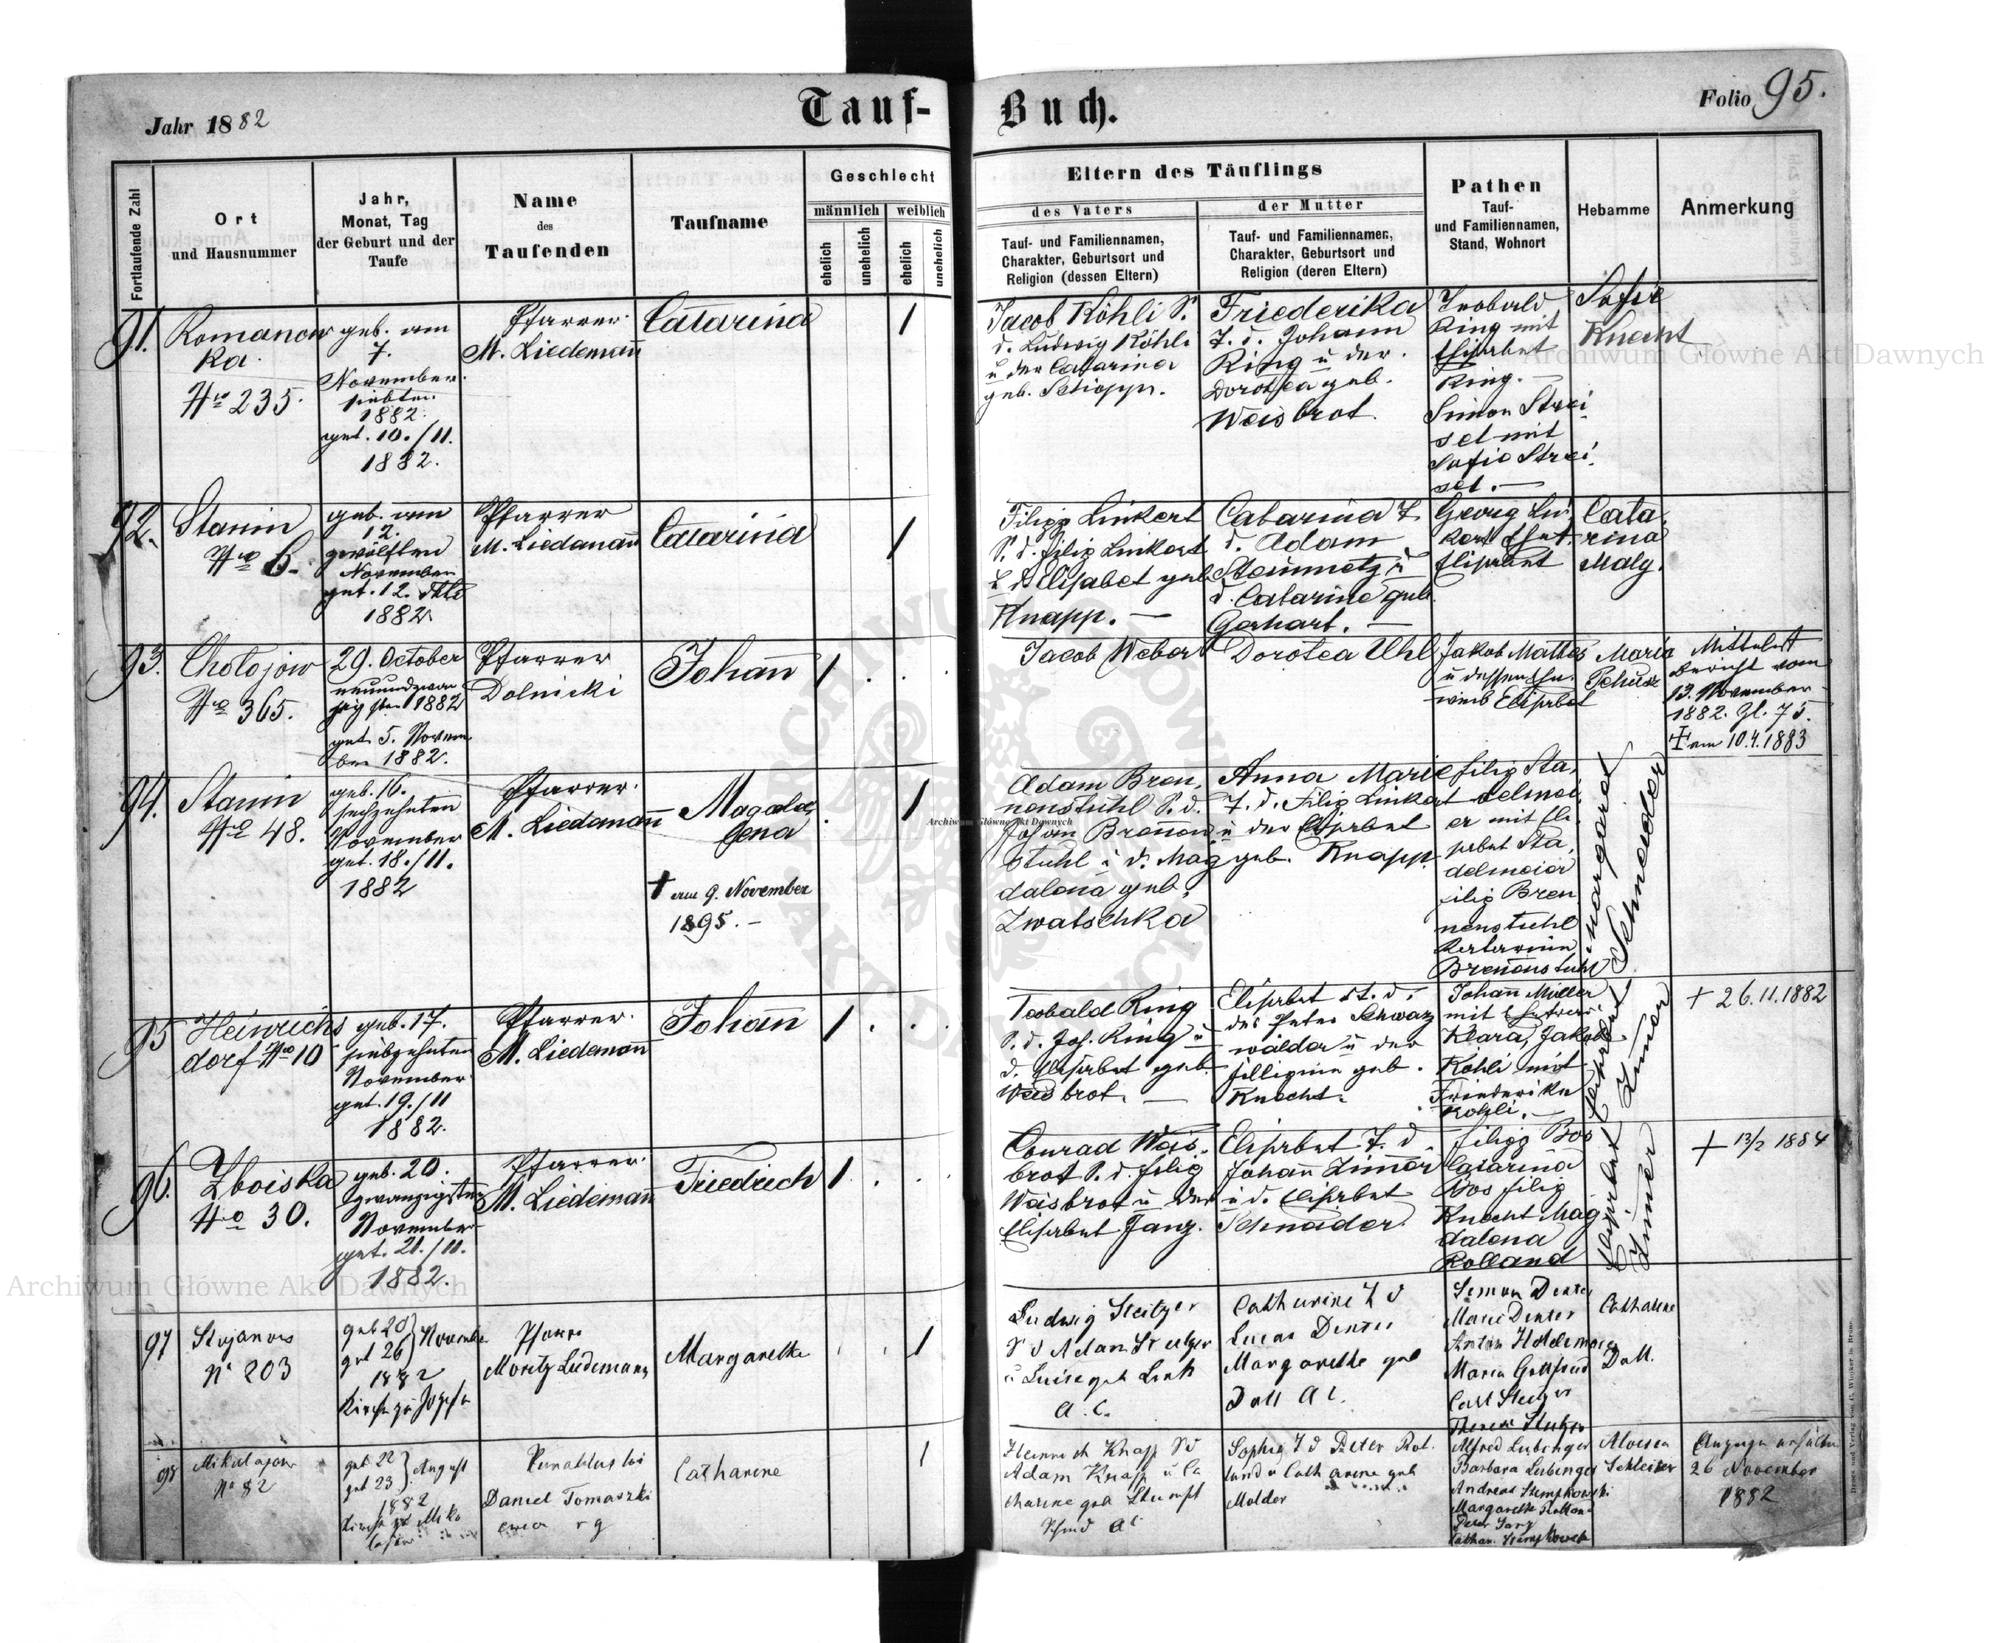 Jahr 1882
Tauf-
Buch.
Folio 95.
Fortlaufende Zahl
Ort
und Hausnummer
Jahr,
Monat, Tag
der Geburt und der
Taufe
Name
des
Taufenden
Taufname
Geschlecht
männlich
weiblich
ehelich
unehelich
ehelich
unehelich
Eltern des Täuflings
des Vaters
Tauf- und Familiennamen,
Charakter, Geburtsort und
Religion (dessen Eltern)
der Mutter
Tauf- und Familiennamen,
Charakter, Geburtsort und
Religion (deren Eltern)
Pathen
Tauf-
und Familiennamen,
Stand, Wohnort
Hebamme
Anmerkung
91.
Romanow
ka.
No 235.
geb. am
7.
November
siebten
1882.
get. 10./11.
1882.
Pfarrer
M. Liedemann
Catarina
1
Jacob Köhli S.
d. Ludwig Köhli
u der Catarina
geb.
Friederika
T. d. Johann
Ring u der
Dorotea geb.
Weisbrot.
Teobald
Ring mit
Elisabet
Ring. —
Simon Strei
sel mit
Sofie Strei
sel. —
Sofie
Knecht
92.
Stanin
No 6.
geb. am
12.
zwölften
November
get. 12.
1882.
Pfarrer
M. Liedemann
Catarina
1
Filipp Linkert
S. d. Filip Linkert
u d. Elisabet geb.
Knapp. —
Catarina T.
d. Adam
Steinmetz u
d. Catarina geb.
Gerhart. —
Georg Lin
kert
Elisabet
Cata
rina
Maly.
93.
Cholojow
No 365.
29. October
neunundzwan
zigsten 1882
get. 5. Novem
ber 1882.
Pfarrer
Dolnicki
Johann
1
Jacob Weber
Dorotea Uhl
Jakob Mattes
u dessen Ehe
weib Elisabet
Maria
Mittelst
Bericht vom
13. November
1882. Zl. 75.
† am 10.4.1883
94.
Stanin
No 48.
geb. 16.
sechzehnten
November
get. 18./11.
1882
Pfarrer
M. Liedemann
Magda
lena
† am 9. November
1895. —
1
Adam Bren
nenstuhl S. d.
Johann Brennen
stuhl u d. Mag
dalena geb.
Zwatschka
Anna Marie
T. d. Filip Linkert
u der Elisabet
geb. Knapp.
Filip Sta
delmei
er mit Eli
sabet Sta
delmeier
Filip Bren
nenstuhl
Brennenstuhl
Margaret
Schneider
95
Heinrichs
dorf No 10
geb. 17.
siebzehnten
November
get. 19./11
1882.
Pfarrer
M. Liedemann
Johann
1
Teobald Ring
S. d. Joh. Ring u
d. Elisabet geb.
Weisbrot. —
Elisabet T. d.
des Peter Schwarz
wälder u der
Fillipine geb.
Knecht.
Johann Müller
mit
Klara, Jakob
Köhli mit
Friederika
Köhli. —
Zimer
† 26.11.1882
96.
Zboiska
No 30.
geb. 20.
zwanzigsten
November
get. 21./11.
1882.
Pfarrer
M. Liedemann
Friedrich
1
Conrad Weis
brot S. d. Filip
Weisbrot u der
Elisabet Janz.
Elisabet T. d
Johann Zimer
u d. Elisabet
Schneider.
Filipp Bos
Catarina
Bos Filip
Knecht Mag
dalena
Rolland
Elisabet
Zimer
† 13/2 1884
97
Stojanow
No 203
geb 20
get 26
November
1882
Kirche zu Józefow
Pfarrer
Moritz Liedemann
Margarethe
1
Ludwig Steitzer
S d Adam Steitzer
u Luise geb Link
A. C.
Catharine T d
Lucas Dexter
Margarethe geb
Doll A C.
Simon Dexter
Marie Dexter
Anton
Maria Gottfried
Carl Steitzer
Therese Steitzer
Catharine
Doll.
98
Mikolajow
No 82
geb 22
get 23
August
1882
Kirche zu Miko
lajow
Daniel Tomaszki
Catharine
1
Heinrich Knapp S d
Adam Knapp u Ca
tharine geb Stumpf
A C
Sophie T d Peter Rol
land u Catharine geb
Molder
Alfred Lubinger
Barbara Lubinger
Andreas Stempkowski
Margarethe Rolland
Peter Janz
Cathar. Stempkowski
Schleicher
26 November
1882
Archiwum Główne Akt Dawnych
Archiwum Główne Akt Dawnych
Archiwum Główne Akt Dawnych